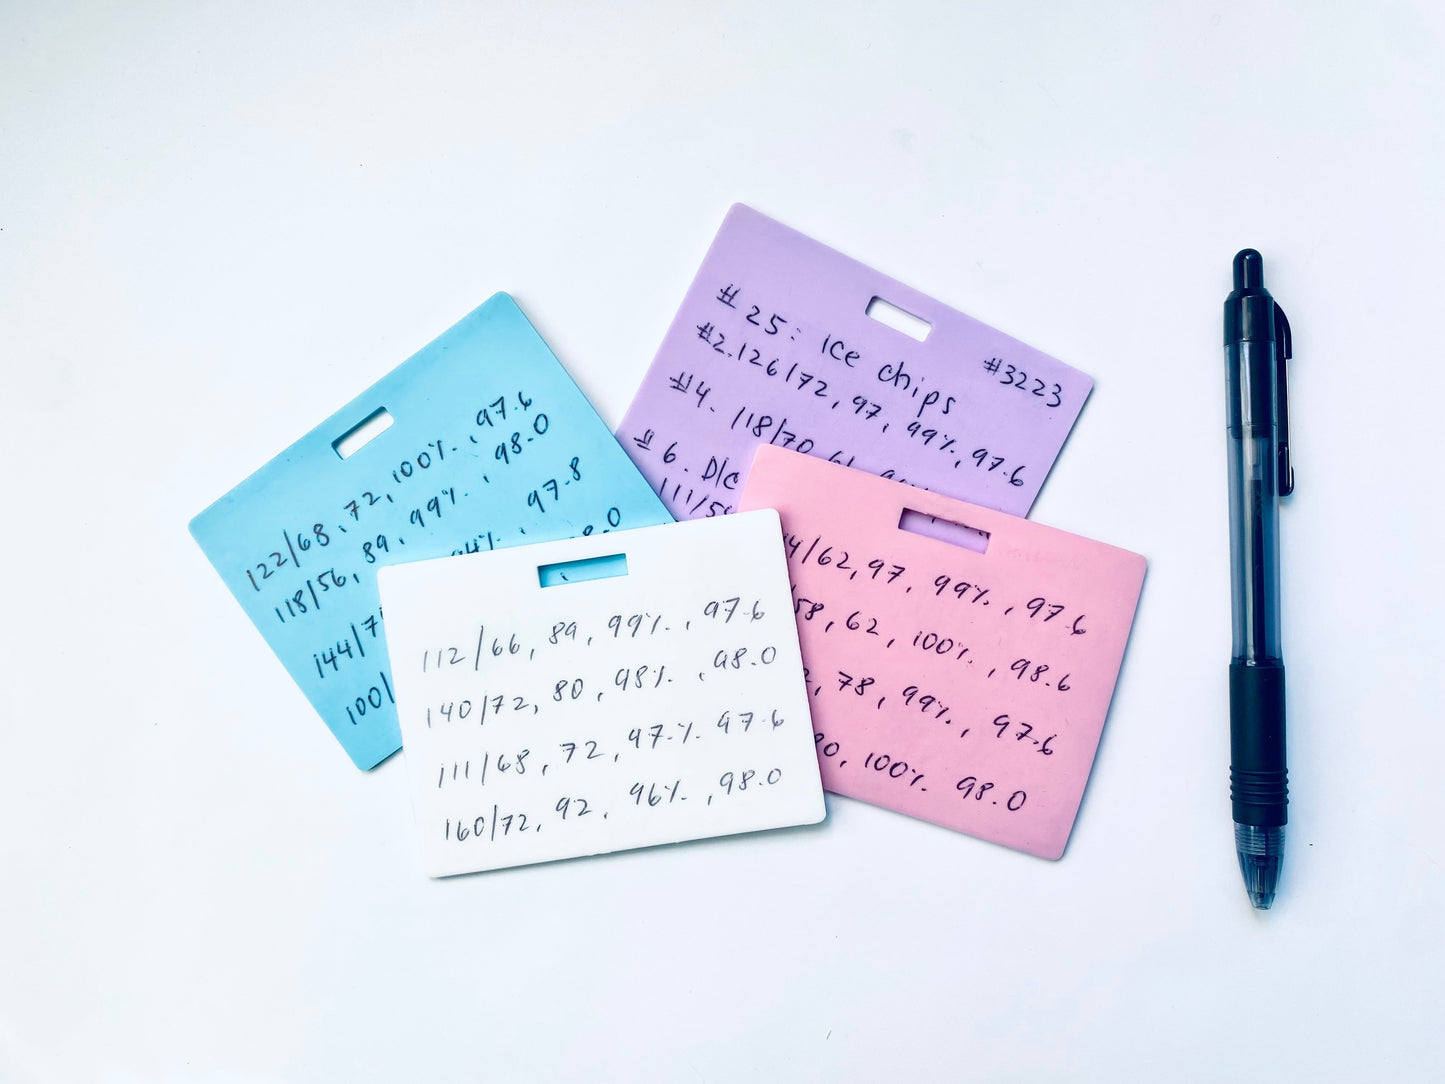 122/68, 72, 100%, 97.6
118/56, 89, 99%, 98.0
144/7 97.8
100/
# 25: ice chips
#3223
#2. 126/72, 97, 99%, 97.6
#4. 118/70
# 6. D/c
111/5
112/66, 89, 99%, 97.6
140/72, 80, 98%, 98.0
111/68, 72, 97% 97.6
160/72, 92, 96%, 98.0
4/62, 97, 99%, 97.6
58, 62, 100%, 98.6
78, 99%, 97.6
100% 98.0